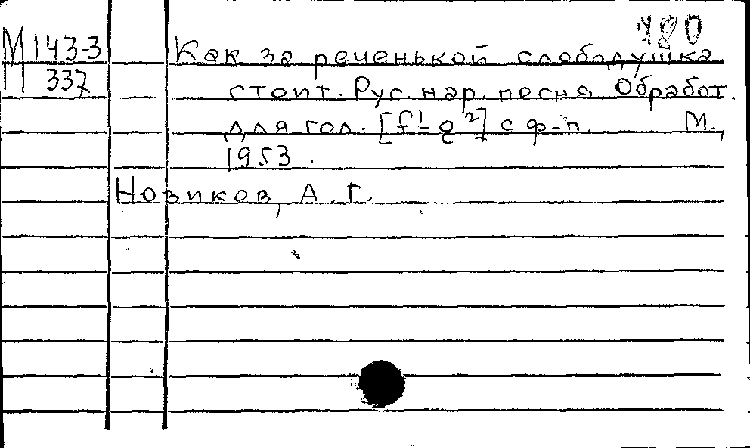 180
М 143-3 Как за реченькой слободушка
337 стоит. Рус. нар. песня. Обработ.
для гол. [f¹-g²] с ф-п. М.,
1953.
Новиков, А. Г.